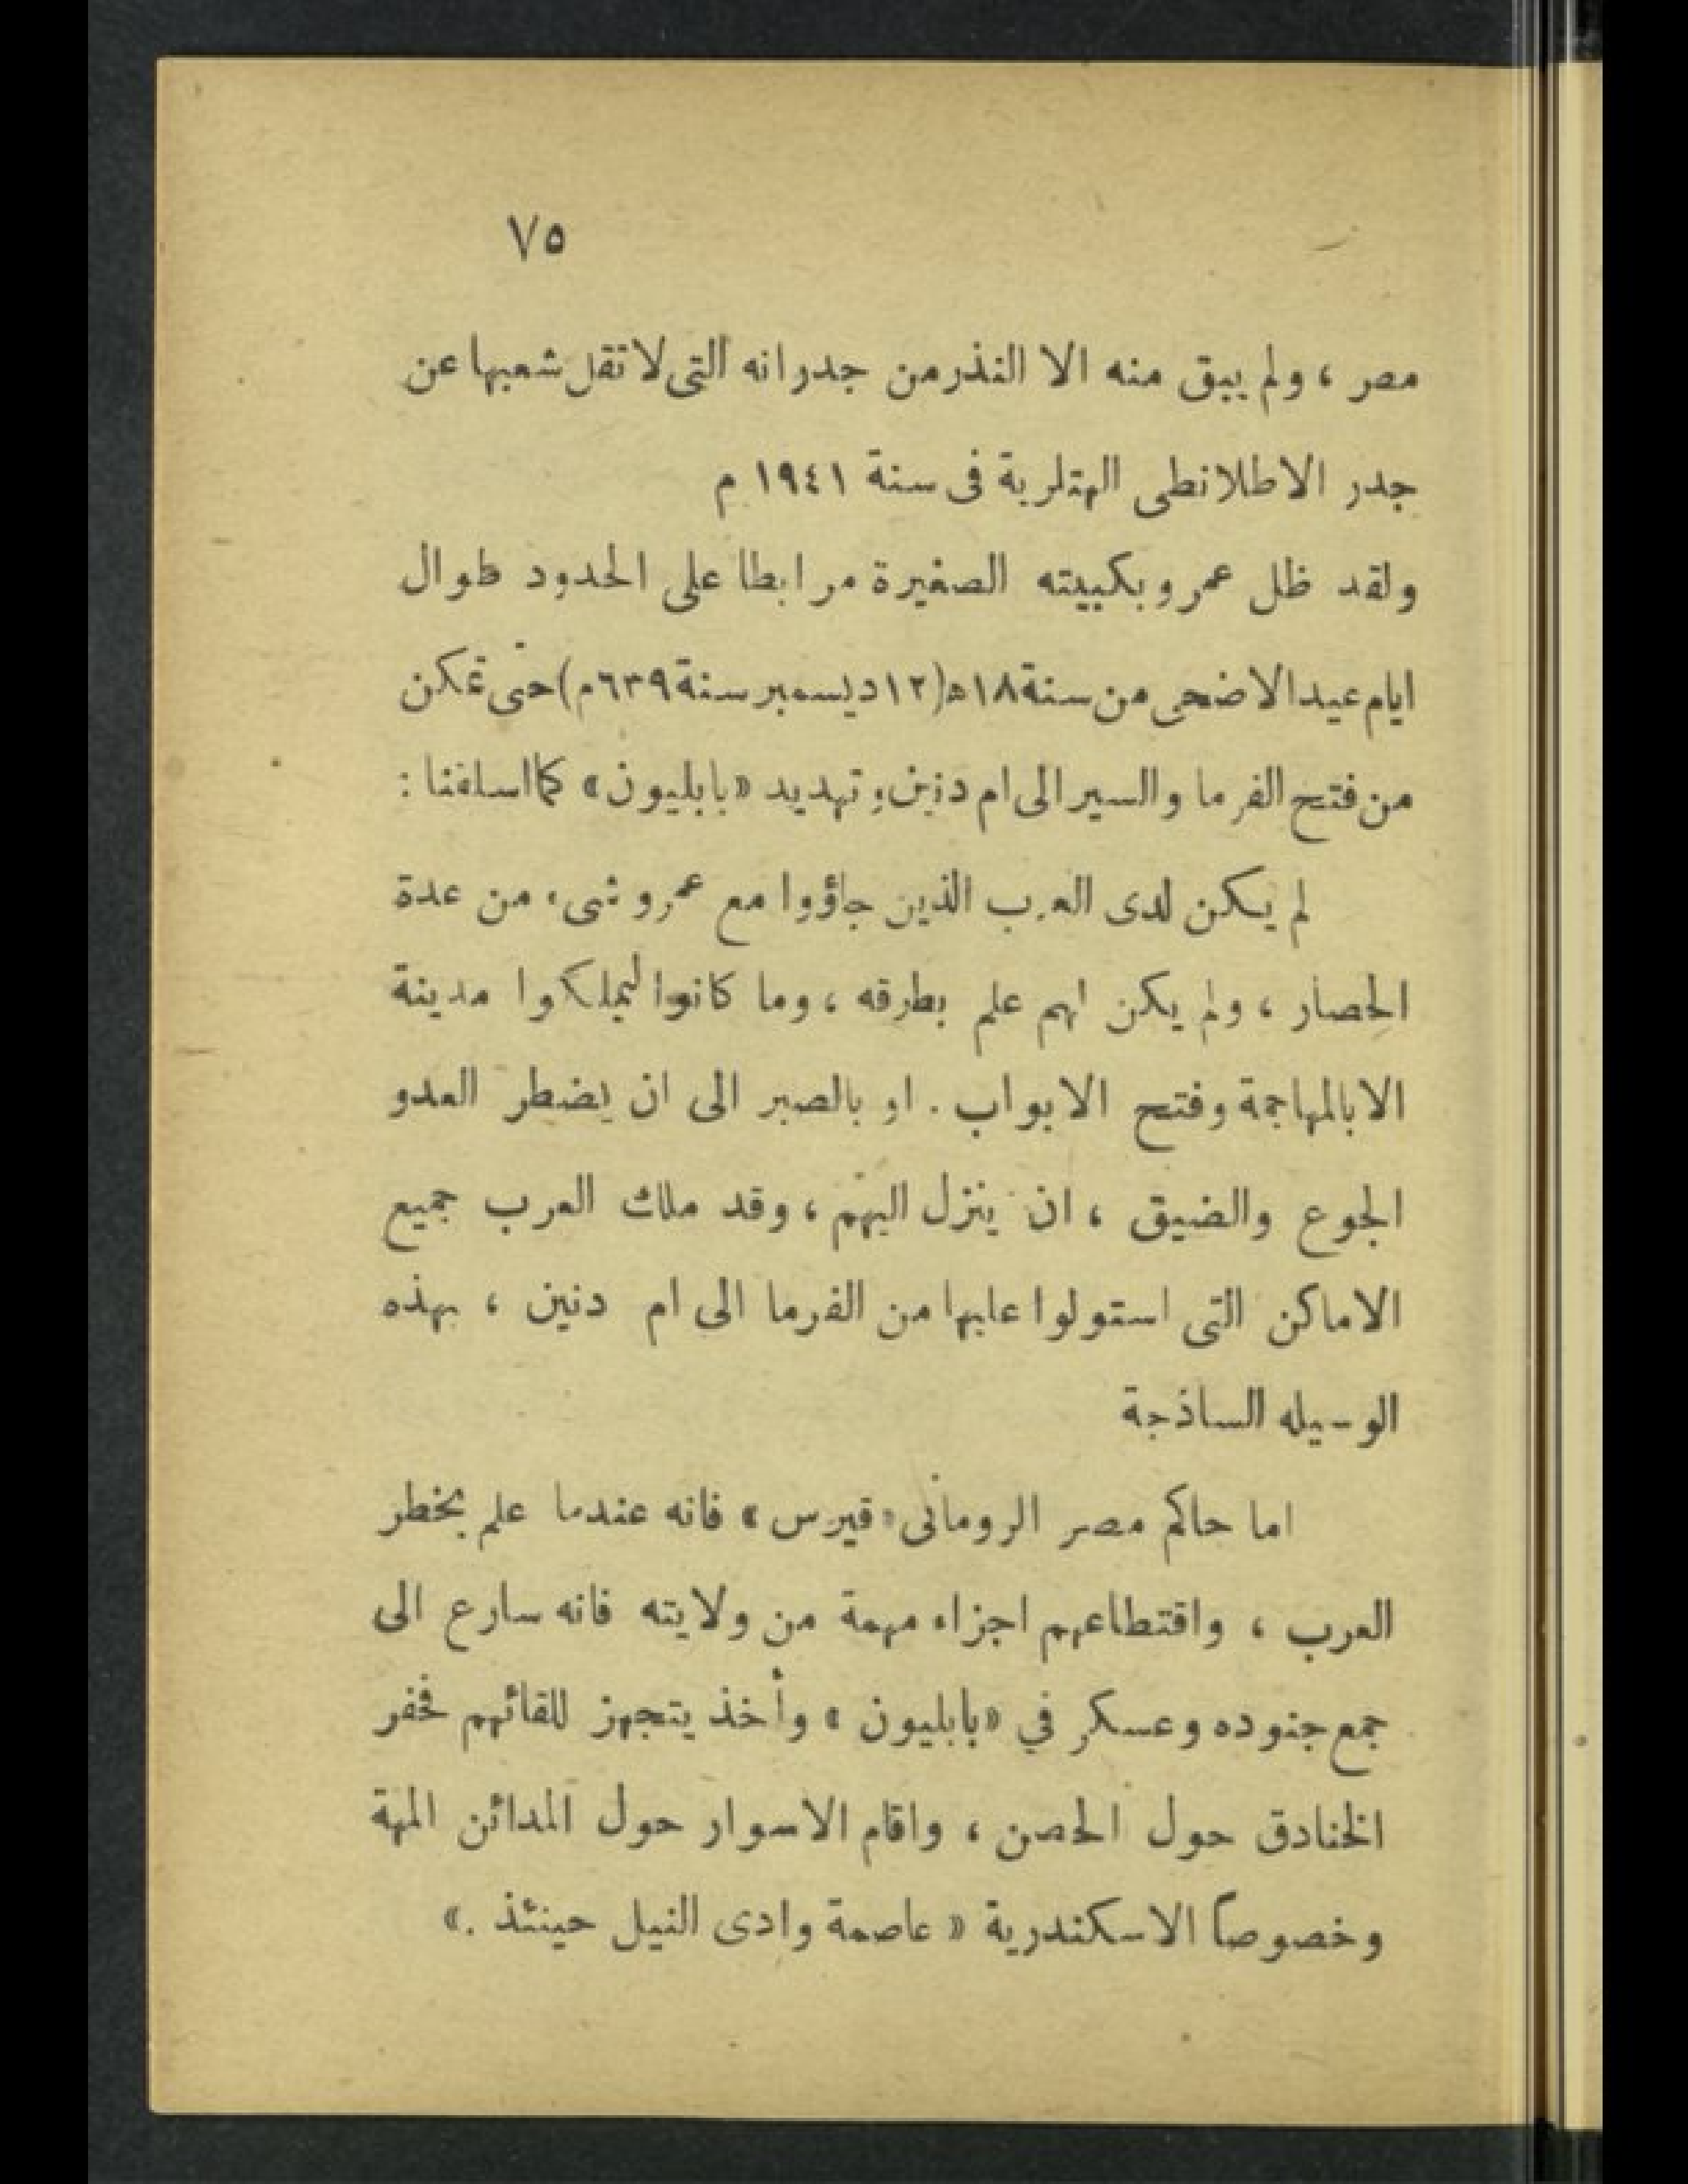 ٧٥
مصر ، ولم يبق منه الا النذر من جدرانه التى لا تقل شعبها عن
جدر الاطلانطى الهتلرية فى سنة ١٩٤١ م
ولقد ظل عمرو بكبيبته الصغيرة مرابطا على الحدود طوال
ايام عيد الاضحى من سنة ١٨ه (١٢ ديسمبر سنة ٦٣٩م) حتى تمكن
من فتح الفرما والسير الى ام دنين وتهديد «بابليون» كما اسلفنا :
لم يكن لدى العرب الذين جاؤوا مع عمرو شىء من عدة
الحصار ، ولم يكن لهم علم بطرقه ، وما كانوا ليملكوا مدينة
الا بالمهاجمة وفتح الابواب . او بالصبر الى ان يضطر العدو
الجوع والضيق ، ان ينزل اليهم ، وقد ملك العرب جميع
الاماكن التى استولوا عليها من الفرما الى ام دنين ، بهذه
الوسيله الساذجة
اما حاكم مصر الرومانى «قيرس» فانه عندما علم بخطر
العرب ، واقتطاعهم اجزاء مهمة من ولايته فانه سارع الى
جمع جنوده وعسكر في «بابليون» وأخذ يتجهز للقائهم فحفر
الخنادق حول الحصن ، واقام الاسوار حول المدائن المهة
وخصوصاً الاسكندرية « عاصمة وادى النيل حينئذ .»